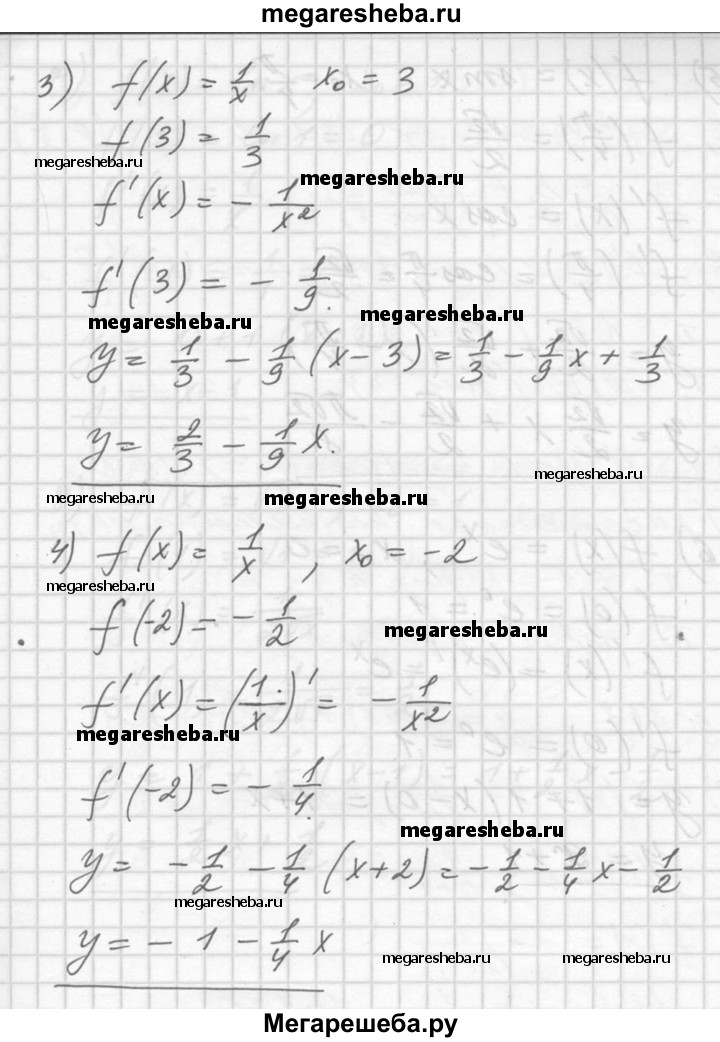 megaresheba.ru
3) f(x) = 1/x x₀ = 3
f(3) = 1/3
megaresheba.ru
megaresheba.ru
f'(x) = - 1/x²
f'(3) = - 1/9.
megaresheba.ru
megaresheba.ru
y = 1/3 - 1/9 (x - 3) = 1/3 - 1/9 x + 1/3
y = 2/3 - 1/9 x.
megaresheba.ru
megaresheba.ru
megaresheba.ru
4) f(x) = 1/x , x₀ = -2
megaresheba.ru
f(-2) = - 1/2
megaresheba.ru
f'(x) = (1/x)' = - 1/x²
megaresheba.ru
f'(-2) = - 1/4.
megaresheba.ru
y = - 1/2 - 1/4 (x+2) = - 1/2 - 1/4 x - 1/2
megaresheba.ru
y = - 1 - 1/4 x
megaresheba.ru
megaresheba.ru
Мегарешеба.ру